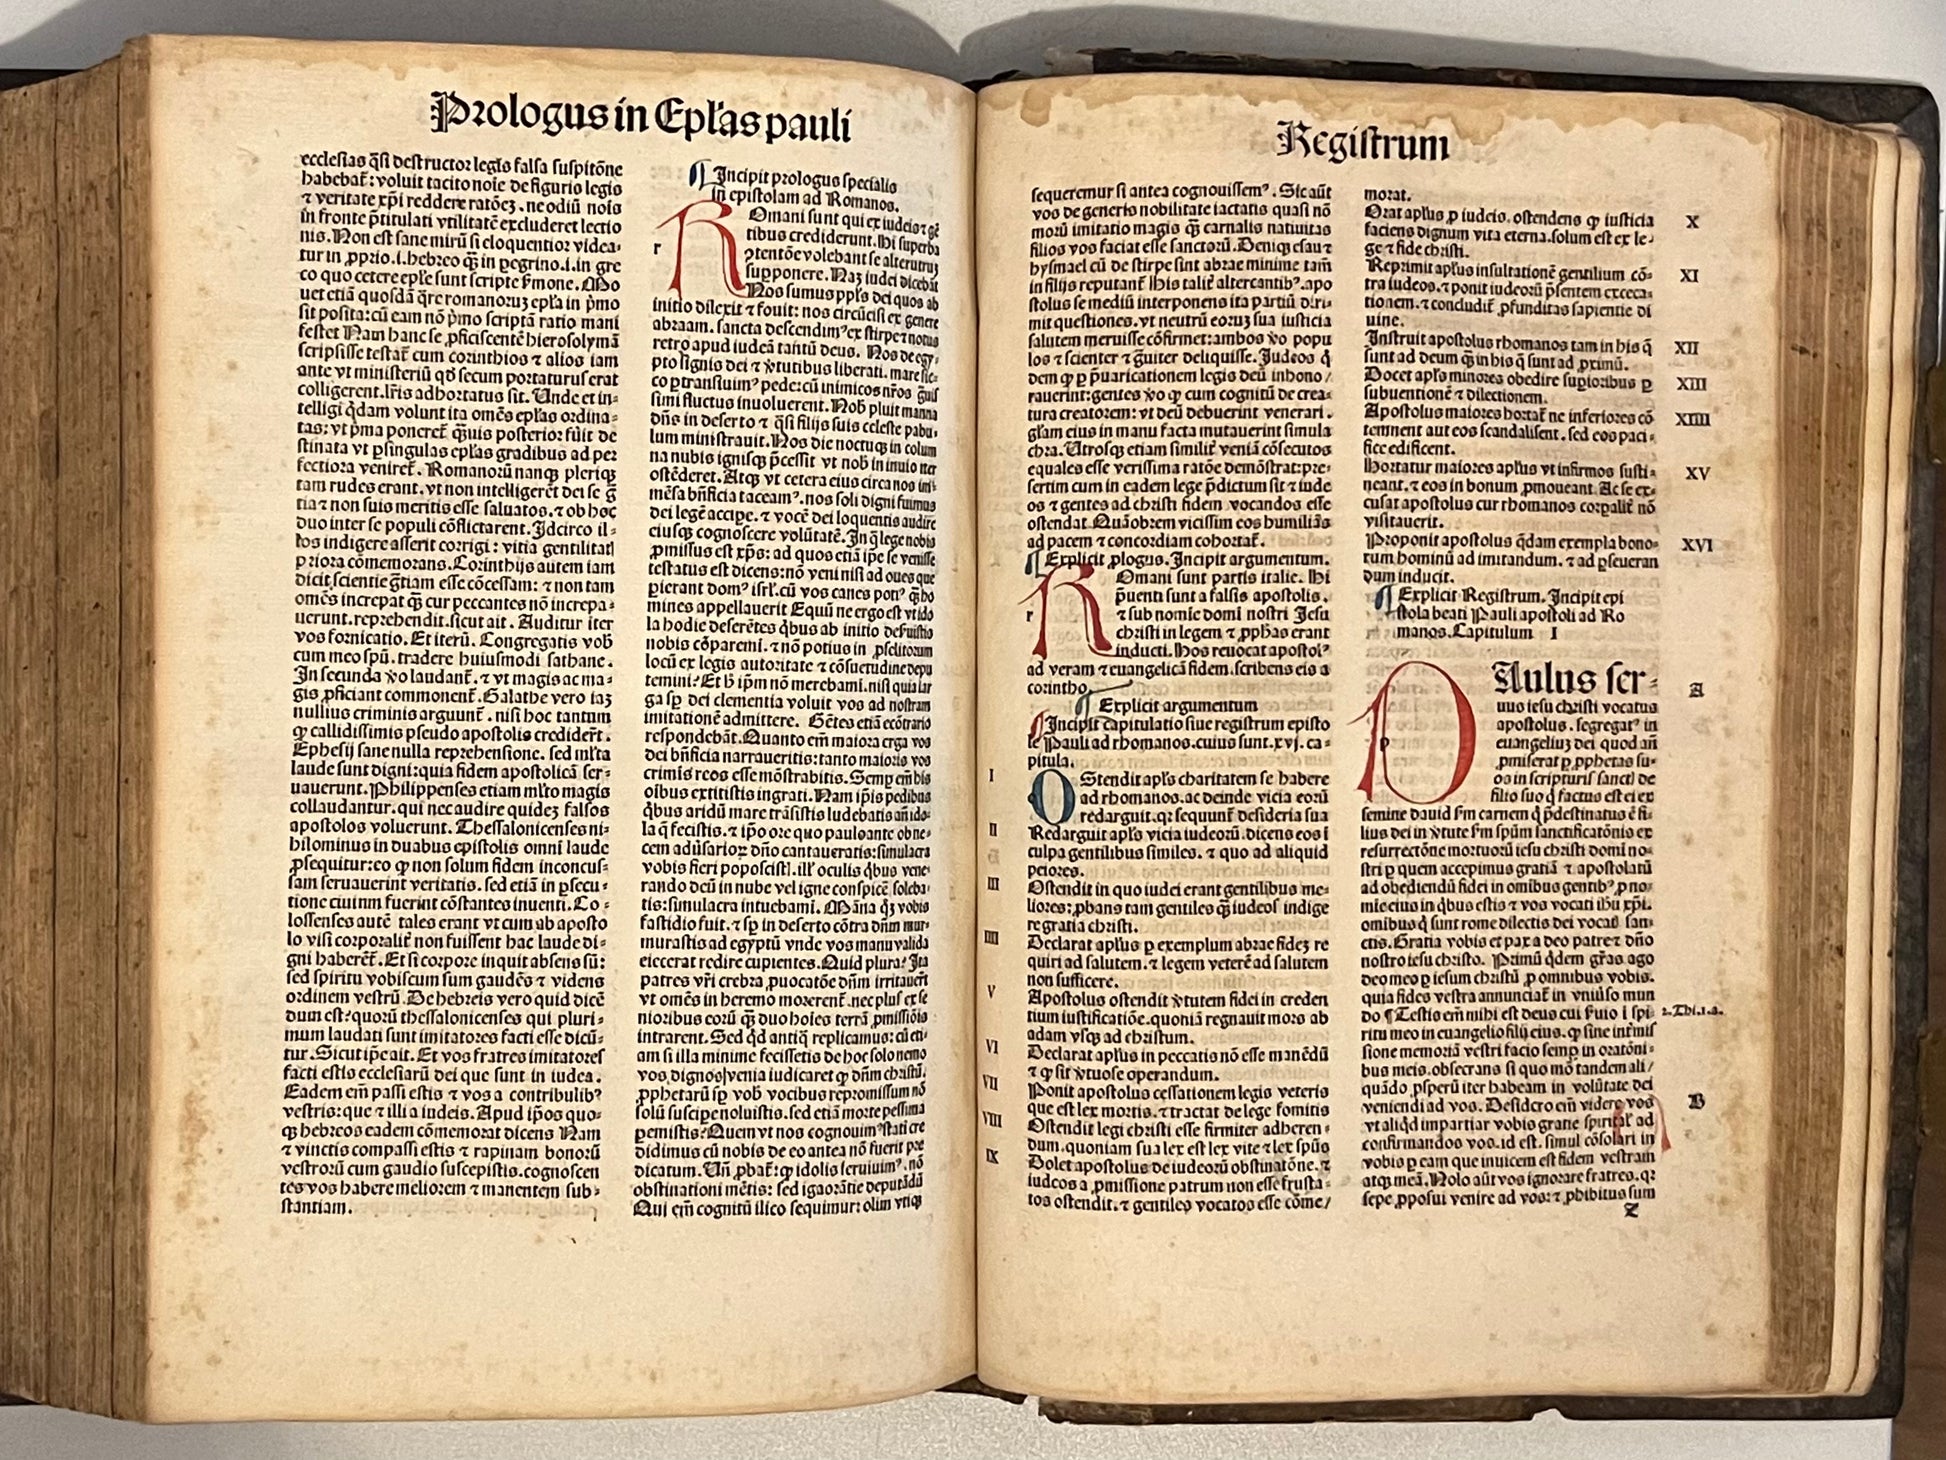 Prologus in Epl'as pauli
ecclesias q̄si destructor legis falsa suspitōne
habebat̄: voluit tacito noīe de figuris legis
⁊ veritate xp̄i reddere ratōeꝫ. ne odiū nois
in fronte p̄titulati vtilitatē excluderet lectio
nis. Non est sane mirū si eloquentior videa⸗
tur in ꝓprio .i. hebreo q̄ꝫ in ꝑegrino .i. in gre
co quo cetere epl'e sunt scripte ẜmone. Mo
uet etiā quosdā q̄re romanoruꝫ epl'a in p̄mo
sit posita: cū eam nō p̄mo scriptā ratio mani
festet Nam hanc se ꝓficiscentē hierosolymā
scripsisse testat̄ cum corinthios ⁊ alios iam
ante vt ministeriū qd̄ secum portaturus erat
colligerent. lr̄is adhortatus sit. Unde et in⸗
telligi q̄dam volunt ita omēs epl'as ordina⸗
tas: vt p̄ma poneret̄ q̄uis posterior fuit de
stinata vt ꝑ singulas epl'as gradibus ad per
fectiora veniret̄. Romanorū nanqꝫ pleriqꝫ
tam rudes erant. vt non intelligerēt dei se gr̄a
tia ⁊ non suis meritis esse saluatos. ⁊ ob hoc
duo inter se populi cōflictarent. Idcirco il⸗
los indigere asserit corrigi: vitia gentilitatis
priora cōmemorans. Corinthijs autem iam
dicit scientie gr̄tiam esse cōcessam: ⁊ non tam
omēs increpat q̄ꝫ cur peccantes nō increpa⸗
uerunt. reprehendit. sicut ait. Auditur iter
vos fornicatio. Et iterū. Congregatis vob̄
cum meo spū. tradere huiusmodi sathane.
In secunda v̊o laudant̄. ⁊ vt magis ac ma⸗
gis ꝓficiant commonent̄. Galathe vero iaꝫ
nullius criminis arguunt̄. nisi hoc tantum
ꝙ callidissimis pseudo apostolis crediderūt.
Ephesij sane nulla reprehensione. sed ml'ta
laude sunt digni: quia fidem apostolicā ser⸗
uauerunt. Philippenses etiam ml'to magis
collaudantur. qui nec audire quideꝫ falsos
apostolos voluerunt. Thessalonicenses ni⸗
hilominus in duabus epistolis omni laude
ꝓsequitur: eo ꝙ non solum fidem inconcus⸗
sam seruauerint veritatis. sed etiā in ꝑsecu⸗
tione ciuium fuerint cōstantes inuenti. Co⸗
lossenses autē tales erant vt cum ab aposto
lo visi corporalit̄ non fuissent hac laude di⸗
gni haberēt̄. Et si corpore inquit absens sū:
sed spiritu vobiscum sum gaudēs ⁊ videns
ordinem vestrū. De hebreis vero quid dicē
dum est? quorū thessalonicenses qui pluri⸗
mum laudati sunt imitatores facti esse dicū⸗
tur. Sicut ip̄e ait. Et vos fratres imitatores
facti estis ecclesiarū dei que sunt in iudea.
Eadem em̄ passi estis ⁊ vos a contribulibꝰ
vestris: que ⁊ illi a iudeis. Apud ip̄os quo⸗
qꝫ hebreos eadem cōmemorat dicens Nam
⁊ vinctis compassi estis ⁊ rapinam bonorū
vestrorū cum gaudio suscepistis. cognoscen
tes vos habere meliorem ⁊ manentem sub⸗
stantiam.
¶ Incipit prologus specialis
in epistolam ad Romanos.
r Romani sunt qui ex iudeis ⁊ gē
tibus crediderunt. Hi superba
ꝯtentōe volebant se alterutruꝫ
supponere. Naꝫ iudei dicebāt
Nos sumus ppl's dei quos ab
initio dilexit ⁊ fouit: nos circūcisi ex genere
abraam. sancta descendimꝰ ex stirpe ⁊ notus
retro apud iudeā tantū deus. Nos de egy⸗
pto signis dei ⁊ v̊tutibus liberati. mare sic⸗
co ꝑtransiuimꝰ pede: cū inimicos nr̄os g̃uis
simi fluctus inuoluerent. Nob̄ pluit manna
dn̄s in deserto ⁊ q̄si filijs suis celeste pabu⸗
lum ministrauit. Nos die noctuqꝫ in colum
na nubis ignisqꝫ p̄cessit vt nob̄ in inuio iter
ostēderet. Atqꝫ vt cetera eius circa nos im⸗
mēsa bn̄ficia taceamꝰ. nos soli digni fuimus
dei legē accipe. ⁊ vocē dei loquentis audire
eiusqꝫ cognoscere volūtatē. In q̄ lege nobis
ꝓmissus est xp̄s: ad quos etiā ip̄e se venisse
testatus est dicens: nō veni nisi ad oues que
ꝑierant domꝰ isrl'. cū vos canes potiꝰ q̄ꝫ ho
mines appellauerit Equū ne ergo est vt ido
la hodie deserētes q̄bus ab initio deseruistis
nobis cōparemi. ⁊ nō potius in ꝓselitorum
locū ex legis autoritate ⁊ cōsuetudine depu
temini? Et h̄ ip̄m nō merebami. nisi quia lar
ga sp̄ dei clementia voluit vos ad nostram
imitationē admittere. Gētes etiā ecōtrario
respondebāt. Quanto em̄ maiora erga vos
dei bn̄ficia narraueritis: tanto maioris vos
crimis reos esse mōstrabitis. Semp em̄ his
oībus extitistis ingrati. Nam ip̄is pedibus
q̄bus aridū mare trāsistis ludebatis an̄ ido⸗
la q̄ fecistis. ⁊ ip̄o ore quo paulo ante ob ne⸗
cem aduersarioꝝ dn̄o cantaueratis: simulacra
vobis fieri poposcistis. ill' oculis q̄bus vene⸗
rando deū in nube vel igne conspicē soleba⸗
tis: simulacra intuebami. Māna q̄ꝫ vobis
fastidio fuit. ⁊ sp̄ in deserto cōtra dn̄m mur⸗
murastis ad egyptū vnde vos manu valida
eiecerat redire cupientes. Quid plura? Ita
patres vr̄i crebra ꝓuocatōe dn̄m irritauerūt
vt omēs in heremo morerent̄. nec plus ex se
nioribus eorū q̄ꝫ duo hoies terrā ꝓmissiōis
intrarent. Sed qd̄ antiq̄ replicamus: cū eti⸗
am si illa minime fecissetis de hoc solo nemo
vos dignos venia iudicaret ꝙ dn̄m christū.
ꝓphetarū sp̄ vob̄ vocibus repromissum nō
solū suscipe noluistis. sed etiā morte pessima
ꝑemistis? Quem vt nos cognouimꝰ stati cre
didimus cū nobis de eo antea nō fuerit pre
dicatum. Un̄ ꝓbat̄: ꝙ idolis seruiuimꝰ. nō
obstinationi mētis: sed ignorātie deputādū
Qui em̄ cognitū ilico sequimur: olim vtiqꝫ
Registrum
sequeremur si antea cognouissemꝰ. Sic aūt
vos de generis nobilitate iactatis quasi nō
morū imitatio magis q̄ꝫ carnalis natiuitas
filios vos faciat esse sanctorū. Deniqꝫ esau ⁊
hysmael cū de stirpe sint abrae minime tam̄
in filijs reputant̄ His talit̄ altercantibꝰ. apo
stolus se mediū interponens ita partiū diri⸗
mit questiones. vt neutrū eoruꝫ sua iusticia
salutem meruisse cōfirmet: ambos v̊o popu
los ⁊ scienter ⁊ g̃uiter deliquisse. Judeos q̄
dem ꝙ ꝑ p̄uaricationem legis deū inhono/
rauerint: gentes v̊o ꝙ cum cognitū de crea⸗
tura creatorem: vt deū debuerint venerari.
gl'am eius in manu facta mutauerint simula
chra. Utrosqꝫ etiam similit̄ veniā cōsecutos
equales esse verissima ratōe demōstrat: pre⸗
sertim cum in eadem lege p̄dictum sit ⁊ iude
os ⁊ gentes ad christi fidem vocandos esse
ostendat. Quāobrem vicissim eos humiliās
ad pacem ⁊ concordiam cohortat̄.
¶ Explicit ꝓlogus. Incipit argumentum.
r Romani sunt partis italie. Hi
p̄uenti sunt a falsis apostolis.
⁊ sub nomīe domi nostri Jesu
christi in legem ⁊ ꝓph̄as erant
inducti. Hos reuocat apostolꝰ
ad veram ⁊ euangelicā fidem. scribens eis a
corintho.
¶ Explicit argumentum
¶ Incipit capitulatio siue registrum episto
le Pauli ad rhomanos. cuius sunt. xvj. ca⸗
pitula.
I OStendit apl's charitatem se habere
ad rhomanos. ac deinde vicia eorū
redarguit. qꝛ sequunt̄ desideria sua
II Redarguit apl's vicia iudeorū. dicens eos i
culpa gentilibus similes. ⁊ quo ad aliquid
peiores.
III Ostendit in quo iudei erant gentilibus me⸗
liores: ꝓbans tam gentiles q̄ꝫ iudeos indige
re gratia christi.
IIII Declarat apl'us ꝑ exemplum abrae fideꝫ re
quiri ad salutem. ⁊ legem veterē ad salutem
non sufficere.
V Apostolus ostendit v̊tutem fidei in creden
tium iustificatiōe. quoniā regnauit mors ab
adam vsqꝫ ad christum.
VI Declarat apl'us in peccatis nō esse manēdū
⁊ ꝙ sit v̊tuose operandum.
VII Ponit apostolus cessationem legis veteris
que est lex mortis. ⁊ tractat de lege fomitis
VIII Ostendit legi christi esse firmiter adheren⸗
dum. quoniam sua lex est lex vite ⁊ lex spūs
IX Dolet apostolus de iudeorū obstinatōne. ⁊
iudeos a ꝓmissione patrum non esse frustra⸗
tos ostendit. ⁊ gentiles vocatos esse cōme/
morat.
Orat apl'us ꝓ iudeis. ostendens ꝙ iusticia X
faciens dignum vita eterna. solum est ex le⸗
ge ⁊ fide christi.
Reprimit apl'us insultationē gentilium cō⸗ XI
tra iudeos. ⁊ ponit iudeorū p̄sentem exceca⸗
tionem. ⁊ concludit̄ ꝓfunditas sapientie di
uine.
Instruit apostolus rhomanos tam in his q̄ XII
sunt ad deum q̄ꝫ in his q̄ sunt ad ꝓximū.
Docet apl's minores obedire suꝑioribus ꝑ XIII
subuentionē ⁊ dilectionem.
Apostolus maiores hortat̄ ne inferiores cō XIIII
temnent aut eos scandalisent. sed eos paci⸗
fice edificent.
Hortatur maiores apl'us vt infirmos susti⸗ XV
neant. ⁊ eos in bonum ꝓmoueant. Ac se ex⸗
cusat apostolus cur rhomanos corꝑalit̄ nō
visitauerit.
Proponit apostolus q̄dam exempla bono⸗ XVI
rum hominū ad imitandum. ⁊ ad ꝑseueran
dum inducit.
¶ Explicit Registrum. Incipit epi
stola beati Pauli apostoli ad Ro
manos. Capitulum I
p PAulus ser⸗ A
uus iesu christi vocatus
apostolus. segregatꝰ in
euangeliuꝫ dei quod an̄
ꝓmiserat ꝑ ꝓphetas su⸗
os in scripturis sanctis de
filio suo q̄ factus est ei ex
semine dauid ẜm carnem q̄ p̄destinatus ē fi⸗
lius dei in v̊tute ẜm spūm sanctificatōnis ex
resurrectōne mortuorū iesu christi domi no⸗
stri ꝑ quem accepimus gratiā ⁊ apostolatū
ad obediendū fidei in omībus gentibꝰ ꝓ no⸗
mīe eius in q̄bus estis ⁊ vos vocati ih̄u xp̄i.
omibus q̄ sunt rome dilectis dei vocatis san⸗
ctis. Gratia vobis et pax a deo patre ⁊ dn̄o
nostro iesu christo. Primū q̄dem gr̄as ago
deo meo ꝑ iesum christū ꝓ omnibus vobis.
quia fides vestra annunciat̄ in vniūso mun
do ¶ Testis em̄ mihi est deus cui ẜuio i spi⸗ 2. Thi. 1. a.
ritu meo in euangelio filij eius. ꝙ sine int̄mis
sione memoriā vestri facio semꝑ in oratōni⸗
bus meis. obsecrans si quo mō tandem ali/
quādo ꝓsperū iter habeam in volūtate dei
veniendi ad vos. Desidero em̄ videre vos B
vt aliq̄d impartiar vobis gratie spiritalꝭ ad
confirmandos vos. id est. simul cōsolari in
vobis ꝑ eam que inuicem est fidem vestram
atqꝫ meā. Nolo aūt vos ignorare fratres. qꝛ
sepe ꝓposui venire ad vos: ⁊ ꝓhibitus sum
z